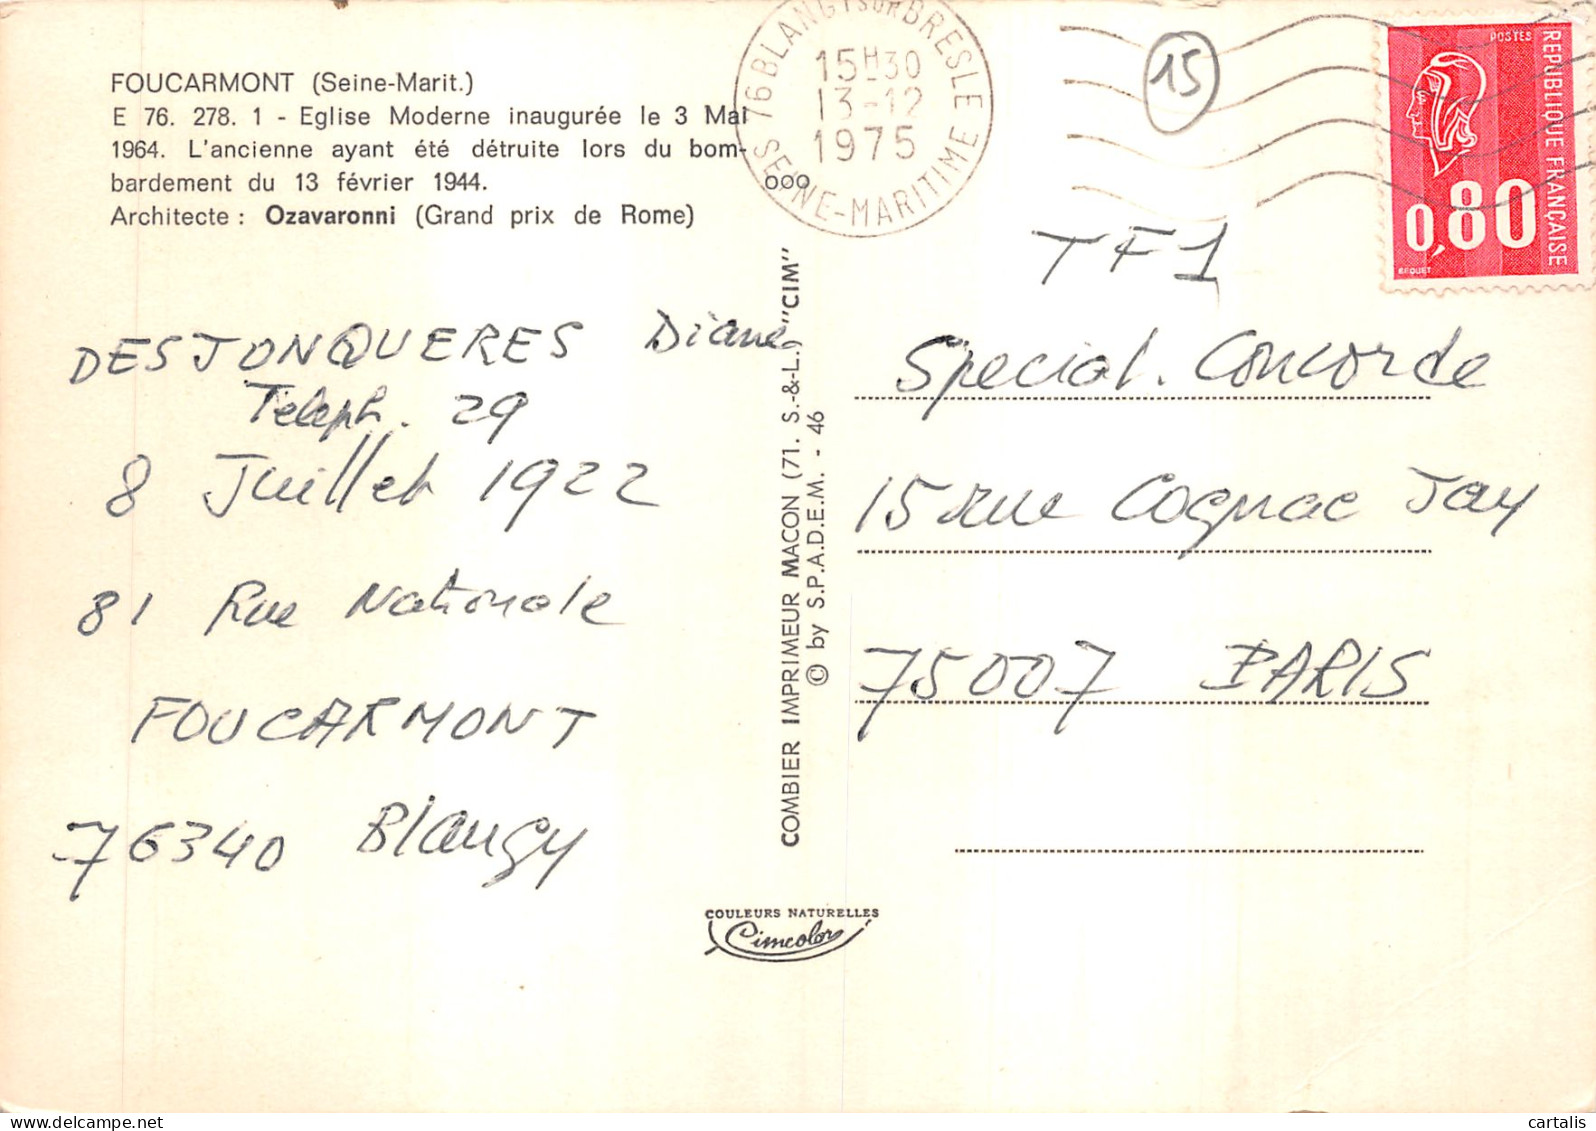 FOUCARMONT (Seine-Marit.)
E 76. 278. 1 - Eglise Moderne inaugurée le 3 Mai
1964. L'ancienne ayant été détruite lors du bom-
bardement du 13 février 1944.
Architecte : Ozavaronni (Grand prix de Rome)
76 BLANGY SUR BRESLE
15H30
13-12
1975
SEINE-MARITIME
000
15
POSTES
REPUBLIQUE FRANÇAISE
0,80
BEQUET
DESJONQUERES Diane
Teleph. 29
8 Juillet 1922
81 Rue Nationale
FOUCARMONT
76340 Blangy
COMBIER IMPRIMEUR MACON (71. S.-&-L.) "CIM"
© by S.P.A.D.E.M. - 46
TF1
Special. Concorde
15 rue Cognac Jay
75007 PARIS
COULEURS NATURELLES
Cimcolor
cartalis
© delcampe.net